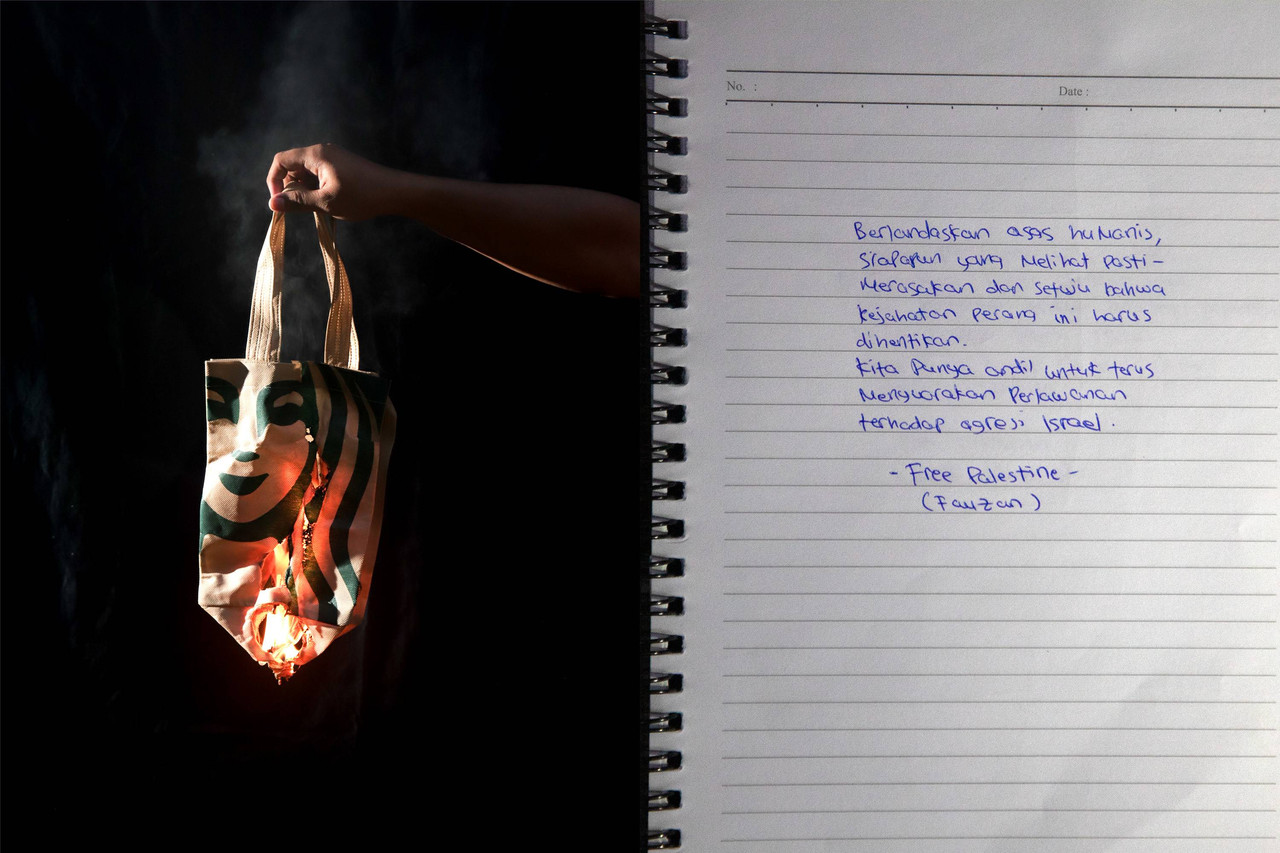 No. :
Date :
Berlandaskan asas humanis,
siapapun yang melihat pasti-
merasakan dan setuju bahwa
kejahatan perang ini harus
dihentikan.
Kita punya andil untuk terus
menyuarakan perlawanan
terhadap agresi Israel.
- Free Palestine -
(Fauzan)